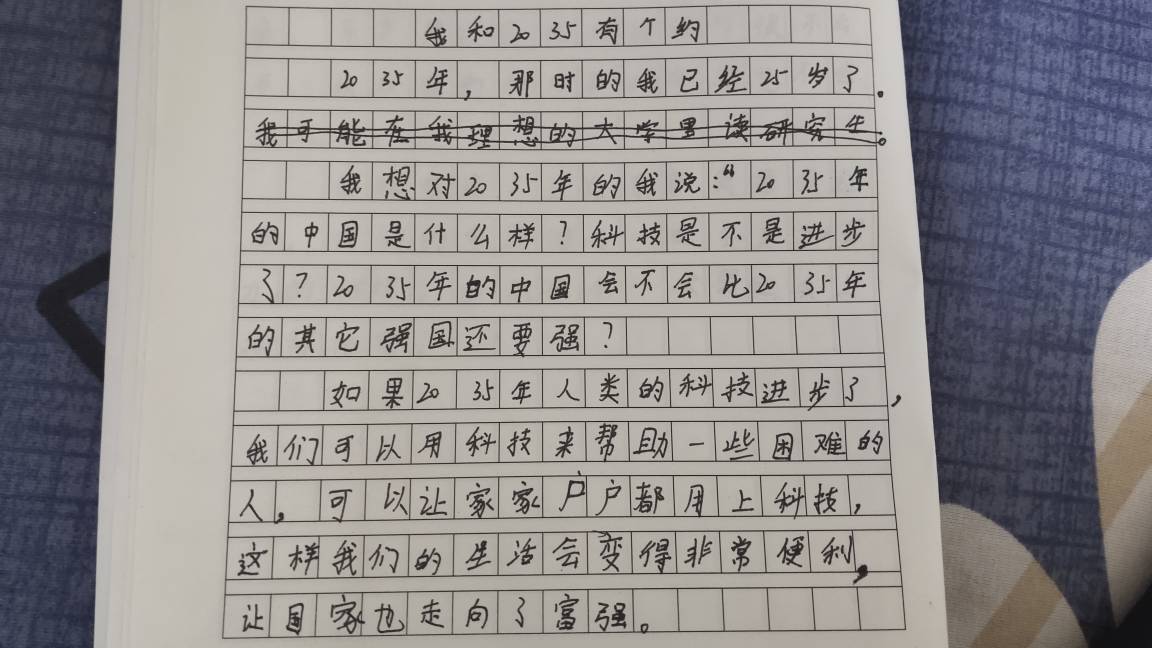 我和2035有个约
2035年，那时的我已经25岁了。
我可能在我理想的大学里读研究生。
我想对2035年的我说：“2035年
的中国是什么样？科技是不是进步
了？2035年的中国会不会比2035年
的其它强国还要强？
如果2035年人类的科技进步了，
我们可以用科技来帮助一些困难的
人，可以让家家户户都用上科技，
这样我们的生活会变得非常便利，
让国家也走向了富强。